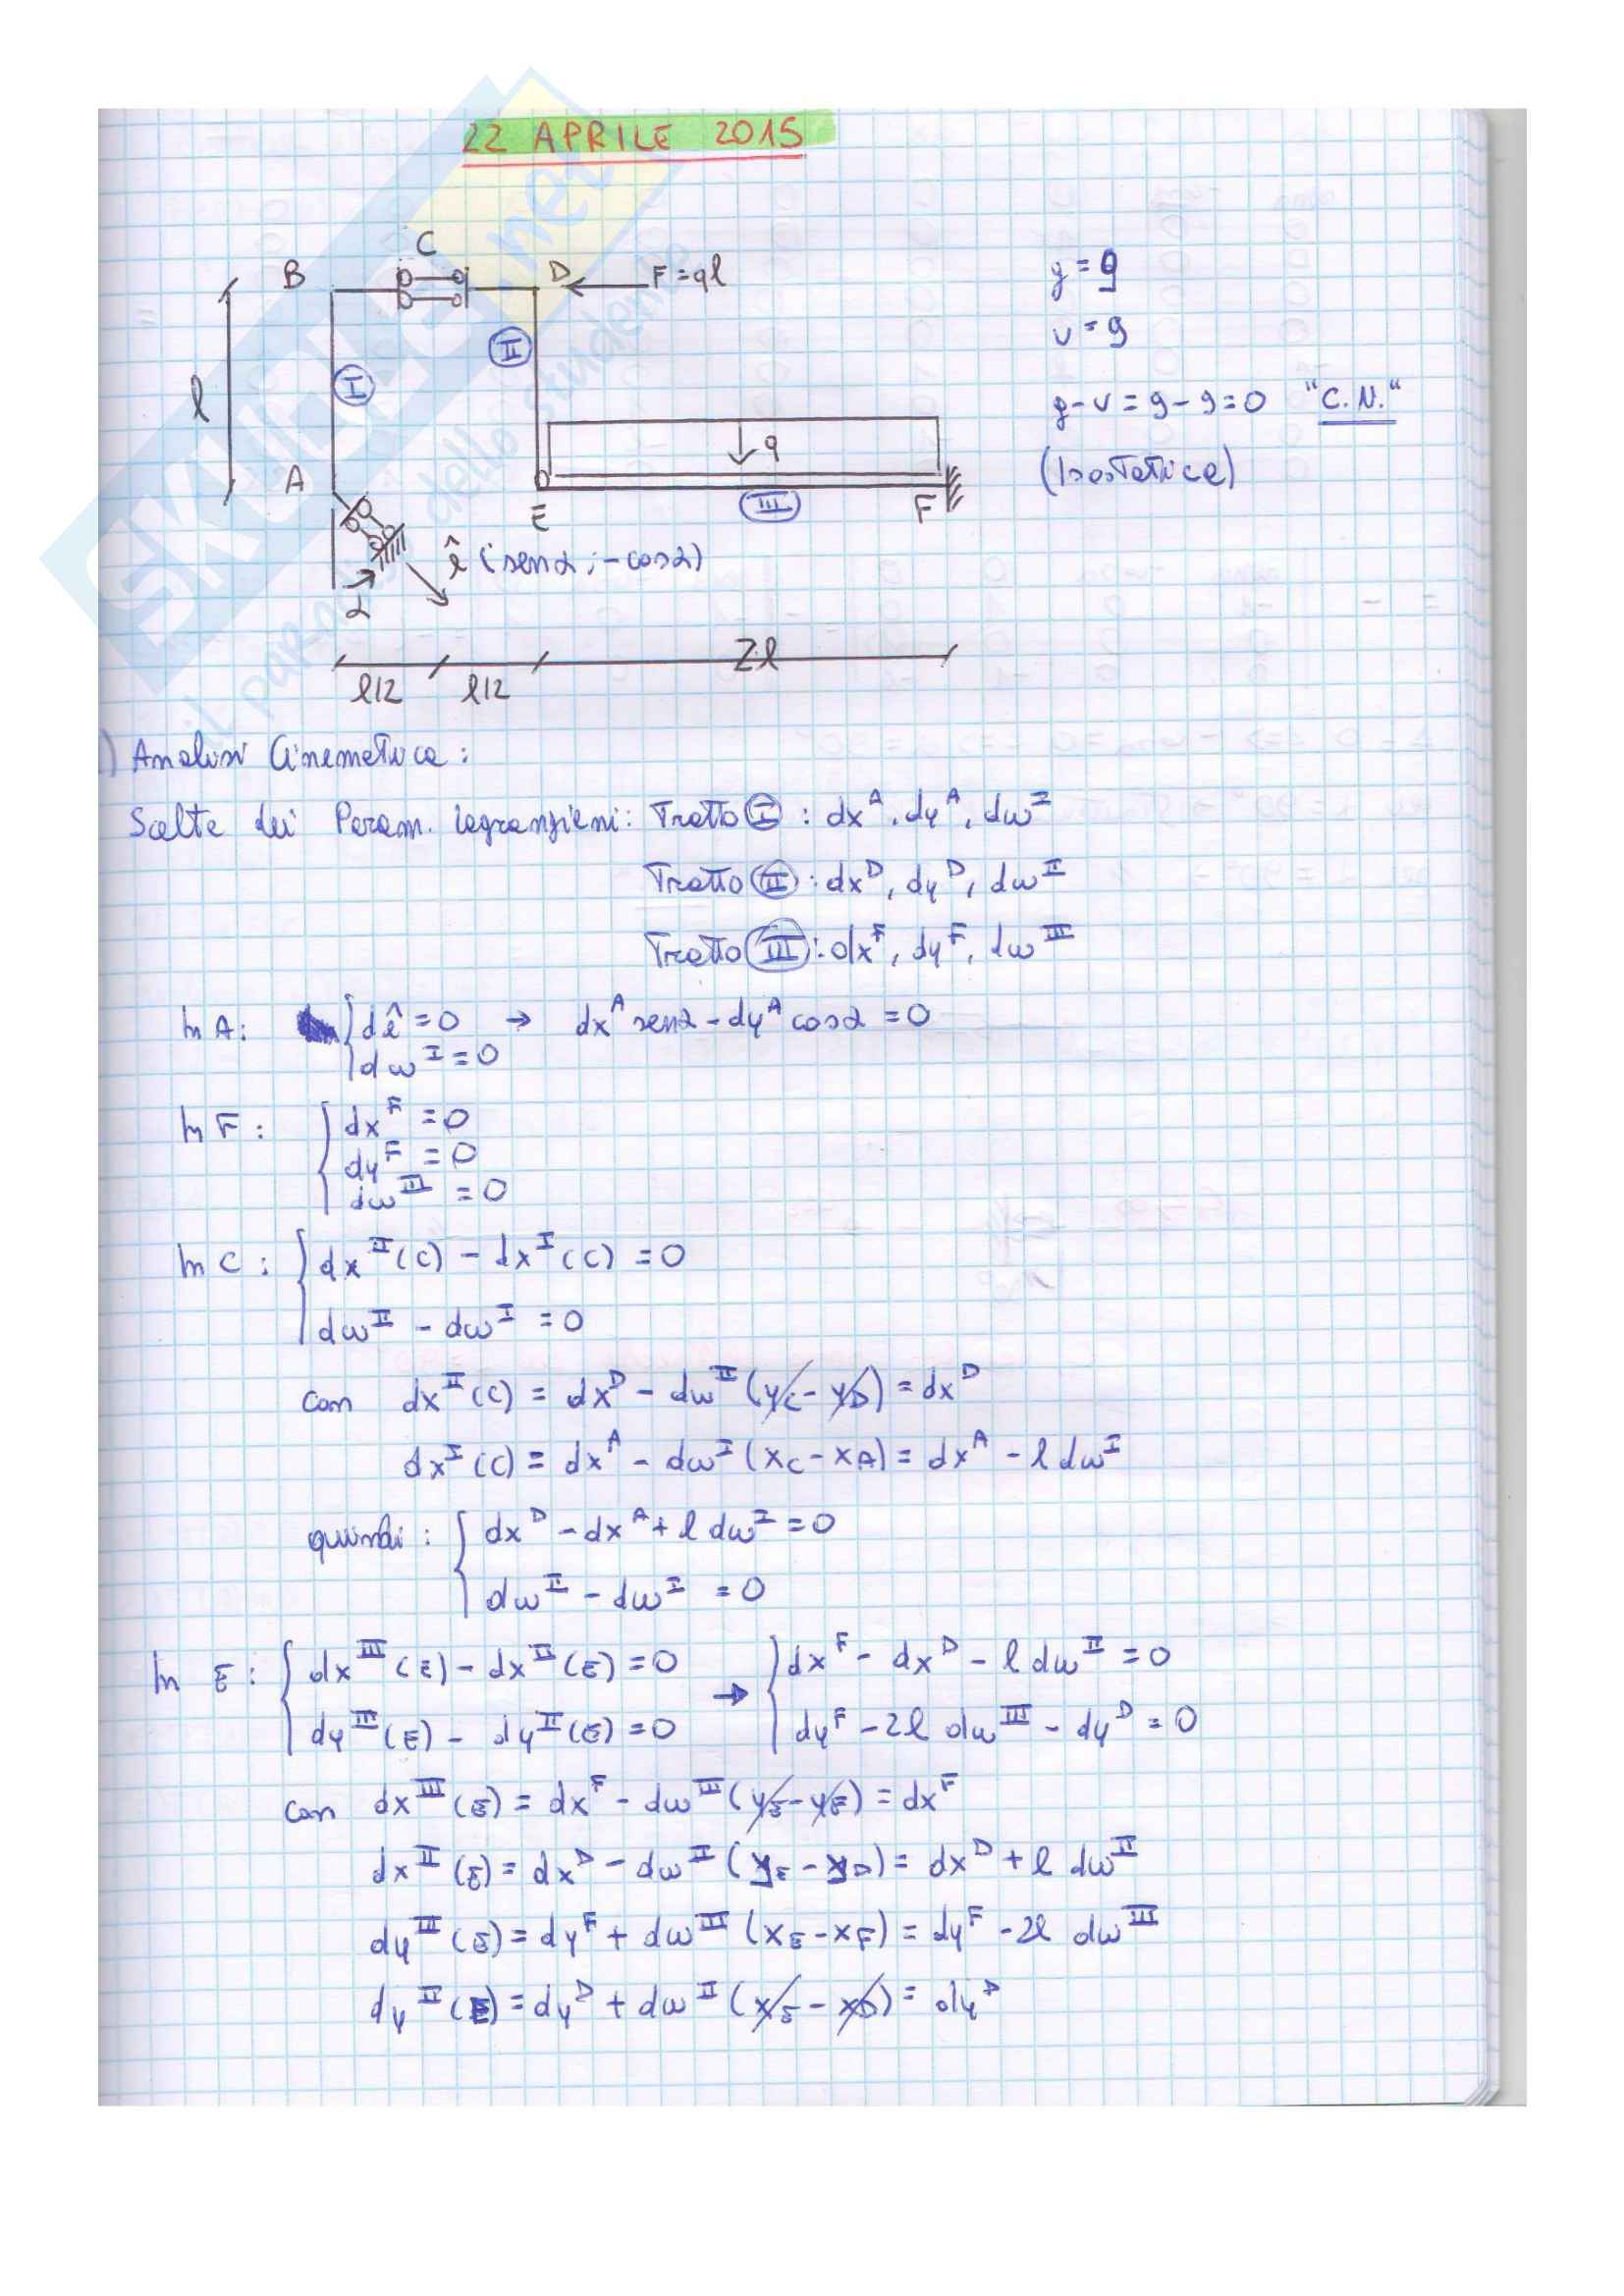 22 APRILE 2015
B
C
D
F = ql
l
I
II
A
q
E
III
F
α
ê (senα ; -cosα)
l/2
l/2
2l
g = 9
v = 9
g - v = 9 - 9 = 0 "C.N."
(Isostatica)
SKUOLA.net
il paradiso dello studente
) Analisi Cinematica :
Scelta dei Param. lagrangiani : Tratto I : dx^A, dy^A, dω^I
Tratto II : dx^D, dy^D, dω^II
Tratto III : dx^F, dy^F, dω^III
In A : dê = 0 → dx^A senα - dy^A cosα = 0
dω^I = 0
In F : dx^F = 0
dy^F = 0
dω^III = 0
In C : dx^II (C) - dx^I (C) = 0
dω^II - dω^I = 0
con dx^II (C) = dx^D - dω^II (y_C - y_D) = dx^D
dx^I (C) = dx^A - dω^I (x_C - x_A) = dx^A - l dω^I
quindi : dx^D - dx^A + l dω^I = 0
dω^II - dω^I = 0
In E : dx^III (E) - dx^II (E) = 0 → dx^F - dx^D - l dω^II = 0
dy^III (E) - dy^II (E) = 0 dy^F - 2l dω^III - dy^D = 0
con dx^III (E) = dx^F - dω^III (y_E - y_F) = dx^F
dx^II (E) = dx^D - dω^II (y_E - y_D) = dx^D + l dω^II
dy^III (E) = dy^F + dω^III (x_E - x_F) = dy^F - 2l dω^III
dy^II (E) = dy^D + dω^II (x_E - x_D) = dy^D